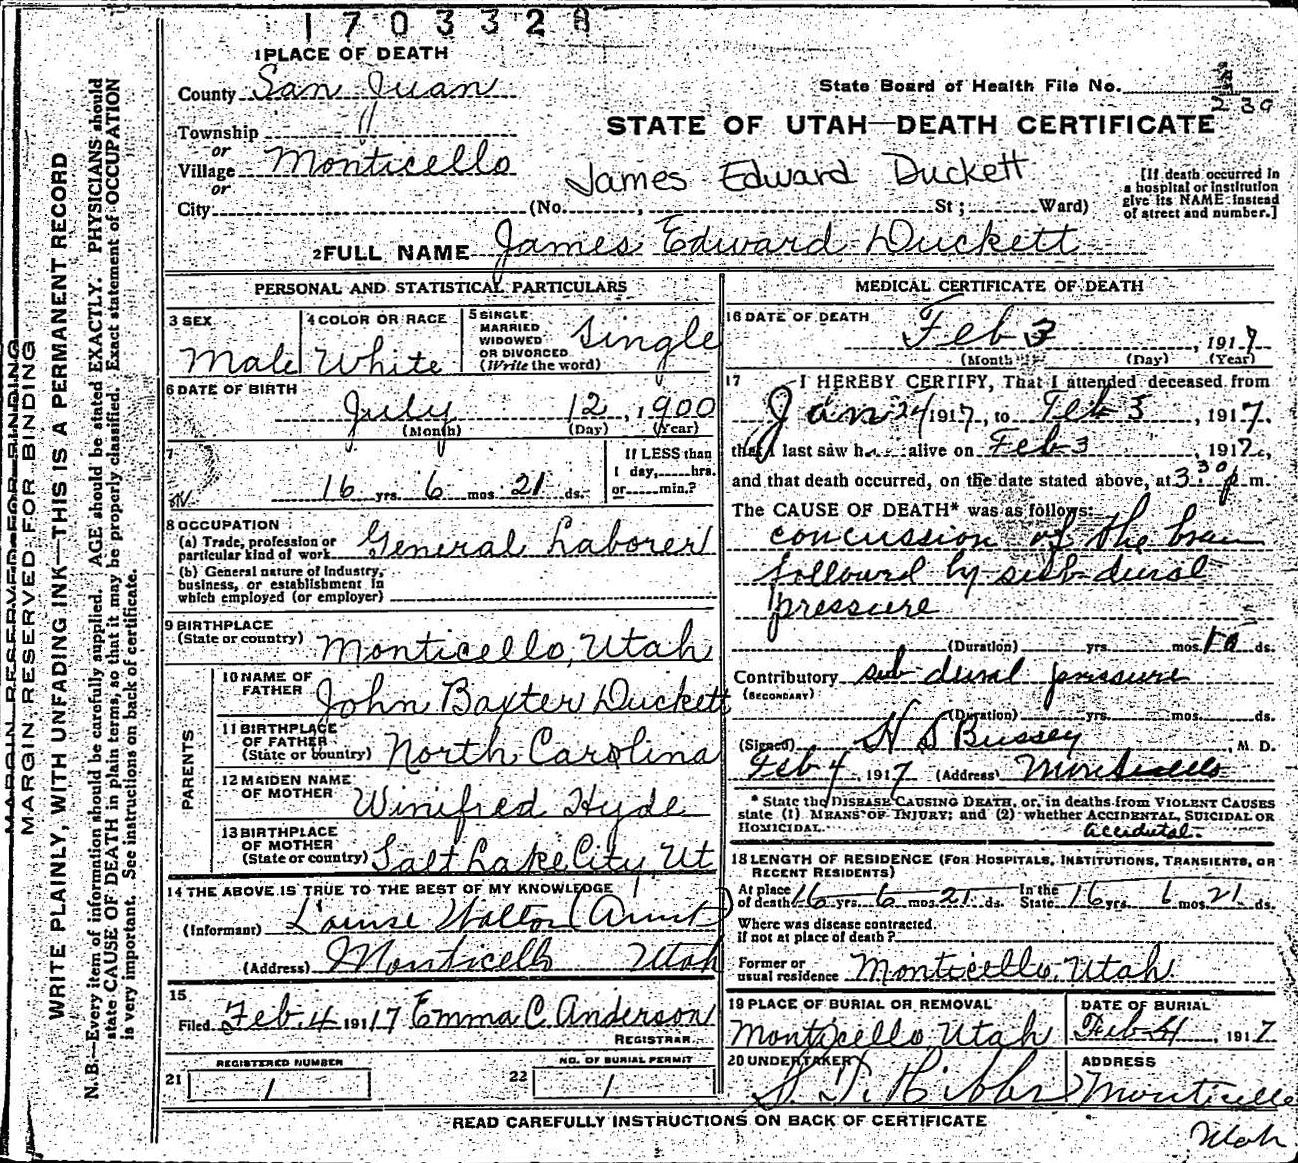 1703328
1 PLACE OF DEATH
County San Juan
State Board of Health File No.
230
Township
or
Village Monticello
or
STATE OF UTAH—DEATH CERTIFICATE
James Edward Duckett
[If death occurred in
a hospital or institution
give its NAME instead
of street and number.]
City (No. , St; Ward)
2 FULL NAME James Edward Duckett
PERSONAL AND STATISTICAL PARTICULARS
3 SEX
Male
4 COLOR OR RACE
White
5 SINGLE
MARRIED
WIDOWED
OR DIVORCED
(Write the word)
Single
6 DATE OF BIRTH
July 12, 1900
(Month) (Day) (Year)
7
16 yrs. 6 mos. 21 ds.
If LESS than
1 day, hrs.
or min.?
8 OCCUPATION
(a) Trade, profession or
particular kind of work General Laborer
(b) General nature of Industry,
business, or establishment in
which employed (or employer)
9 BIRTHPLACE
(State or country) Monticello, Utah
PARENTS
10 NAME OF
FATHER John Baxter Duckett
11 BIRTHPLACE
OF FATHER
(State or country) North Carolina
12 MAIDEN NAME
OF MOTHER Winifred Hyde
13 BIRTHPLACE
OF MOTHER
(State or country) Salt Lake City, Ut
14 THE ABOVE IS TRUE TO THE BEST OF MY KNOWLEDGE
(Informant) Louise Walton (Aunt)
(Address) Monticello Utah
15
Filed Feb. 4 1917 Emma C. Anderson
REGISTRAR
REGISTERED NUMBER
21 1
NO. OF BURIAL PERMIT
22 1
MEDICAL CERTIFICATE OF DEATH
16 DATE OF DEATH
Feb 3, 1917
(Month) (Day) (Year)
17 I HEREBY CERTIFY, That I attended deceased from
Jan 24 1917, to Feb 3, 1917,
that I last saw h alive on Feb 3, 1917,
and that death occurred, on the date stated above, at 3 30 p m.
The CAUSE OF DEATH* was as follows:
concussion of the brain
followed by sub-dural
pressure
(Duration) yrs. mos. 10 ds.
Contributory sub dural pressure
(SECONDARY)
(Duration) yrs. mos. ds.
(Signed) H S Bussey, M. D.
Feb 4, 1917 (Address) Monticello
* State the DISEASE CAUSING DEATH, or, in deaths from VIOLENT CAUSES
state (1) MEANS OF INJURY; and (2) whether ACCIDENTAL, SUICIDAL OR
HOMICIDAL. accidental.
18 LENGTH OF RESIDENCE (FOR HOSPITALS, INSTITUTIONS, TRANSIENTS, OR
RECENT RESIDENTS)
At place
of death 16 yrs. 6 mos. 21 ds. In the
State 16 yrs. 6 mos. 21 ds.
Where was disease contracted,
if not at place of death?
Former or
usual residence Monticello, Utah.
19 PLACE OF BURIAL OR REMOVAL
Monticello, Utah
DATE OF BURIAL
Feb 4, 1917
20 UNDERTAKER
ADDRESS
Monticello
Utah
READ CAREFULLY INSTRUCTIONS ON BACK OF CERTIFICATE
MARGIN RESERVED FOR BINDING
MARGIN RESERVED FOR BINDING
WRITE PLAINLY, WITH UNFADING INK—THIS IS A PERMANENT RECORD
N. B.—Every item of information should be carefully supplied. AGE should be stated EXACTLY. PHYSICIANS should
state CAUSE OF DEATH in plain terms, so that it may be properly classified. Exact statement of OCCUPATION
is very important. See instructions on back of certificate.